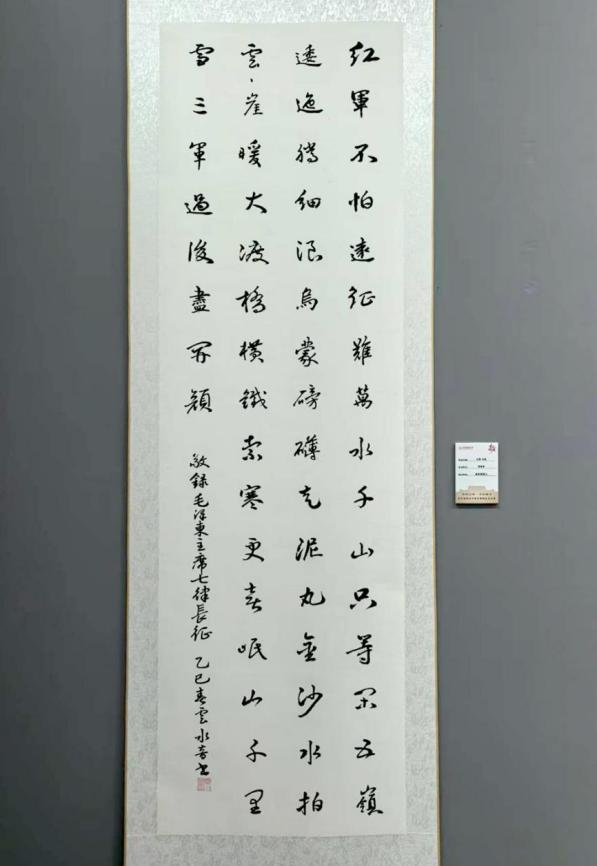 紅軍不怕遠征難萬水千山只等閑五嶺
逶迤騰細浪烏蒙磅礴走泥丸金沙水拍
雲、崖暖大渡橋橫鐵索寒更喜岷山千里
雪三軍過後盡開顔
敬録毛澤東主席七律長征 乙巳春雲水书